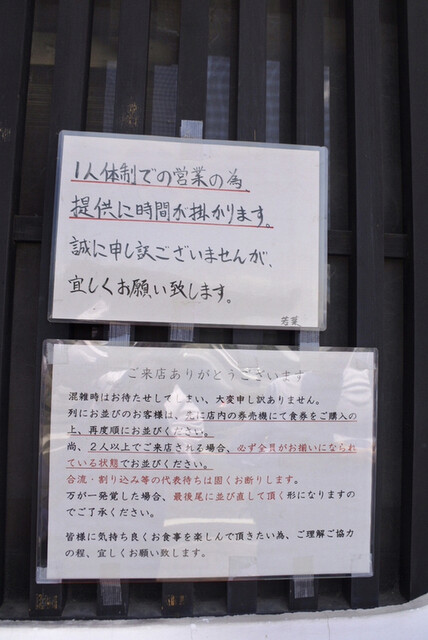 1人体制での営業の為、
提供に時間が掛かります。
誠に申し訳ございませんが、
宜しくお願い致します。
若葉
ご来店ありがとうございます
混雑時はお待たせしてしまい、大変申し訳ありません。
列にお並びのお客様は、先に店内の券売機にて食券をご購入の
上、再度順にお並びください。
尚、2人以上でご来店される場合、必ず全員がお揃いになられ
ている状態でお並びください。
合流・割り込み等の代表待ちは固くお断りします。
万が一発覚した場合、最後尾に並び直して頂く形になりますの
でご了承ください。
皆様に気持ち良くお食事を楽しんで頂きたい為、ご理解ご協力
の程、宜しくお願い致します。